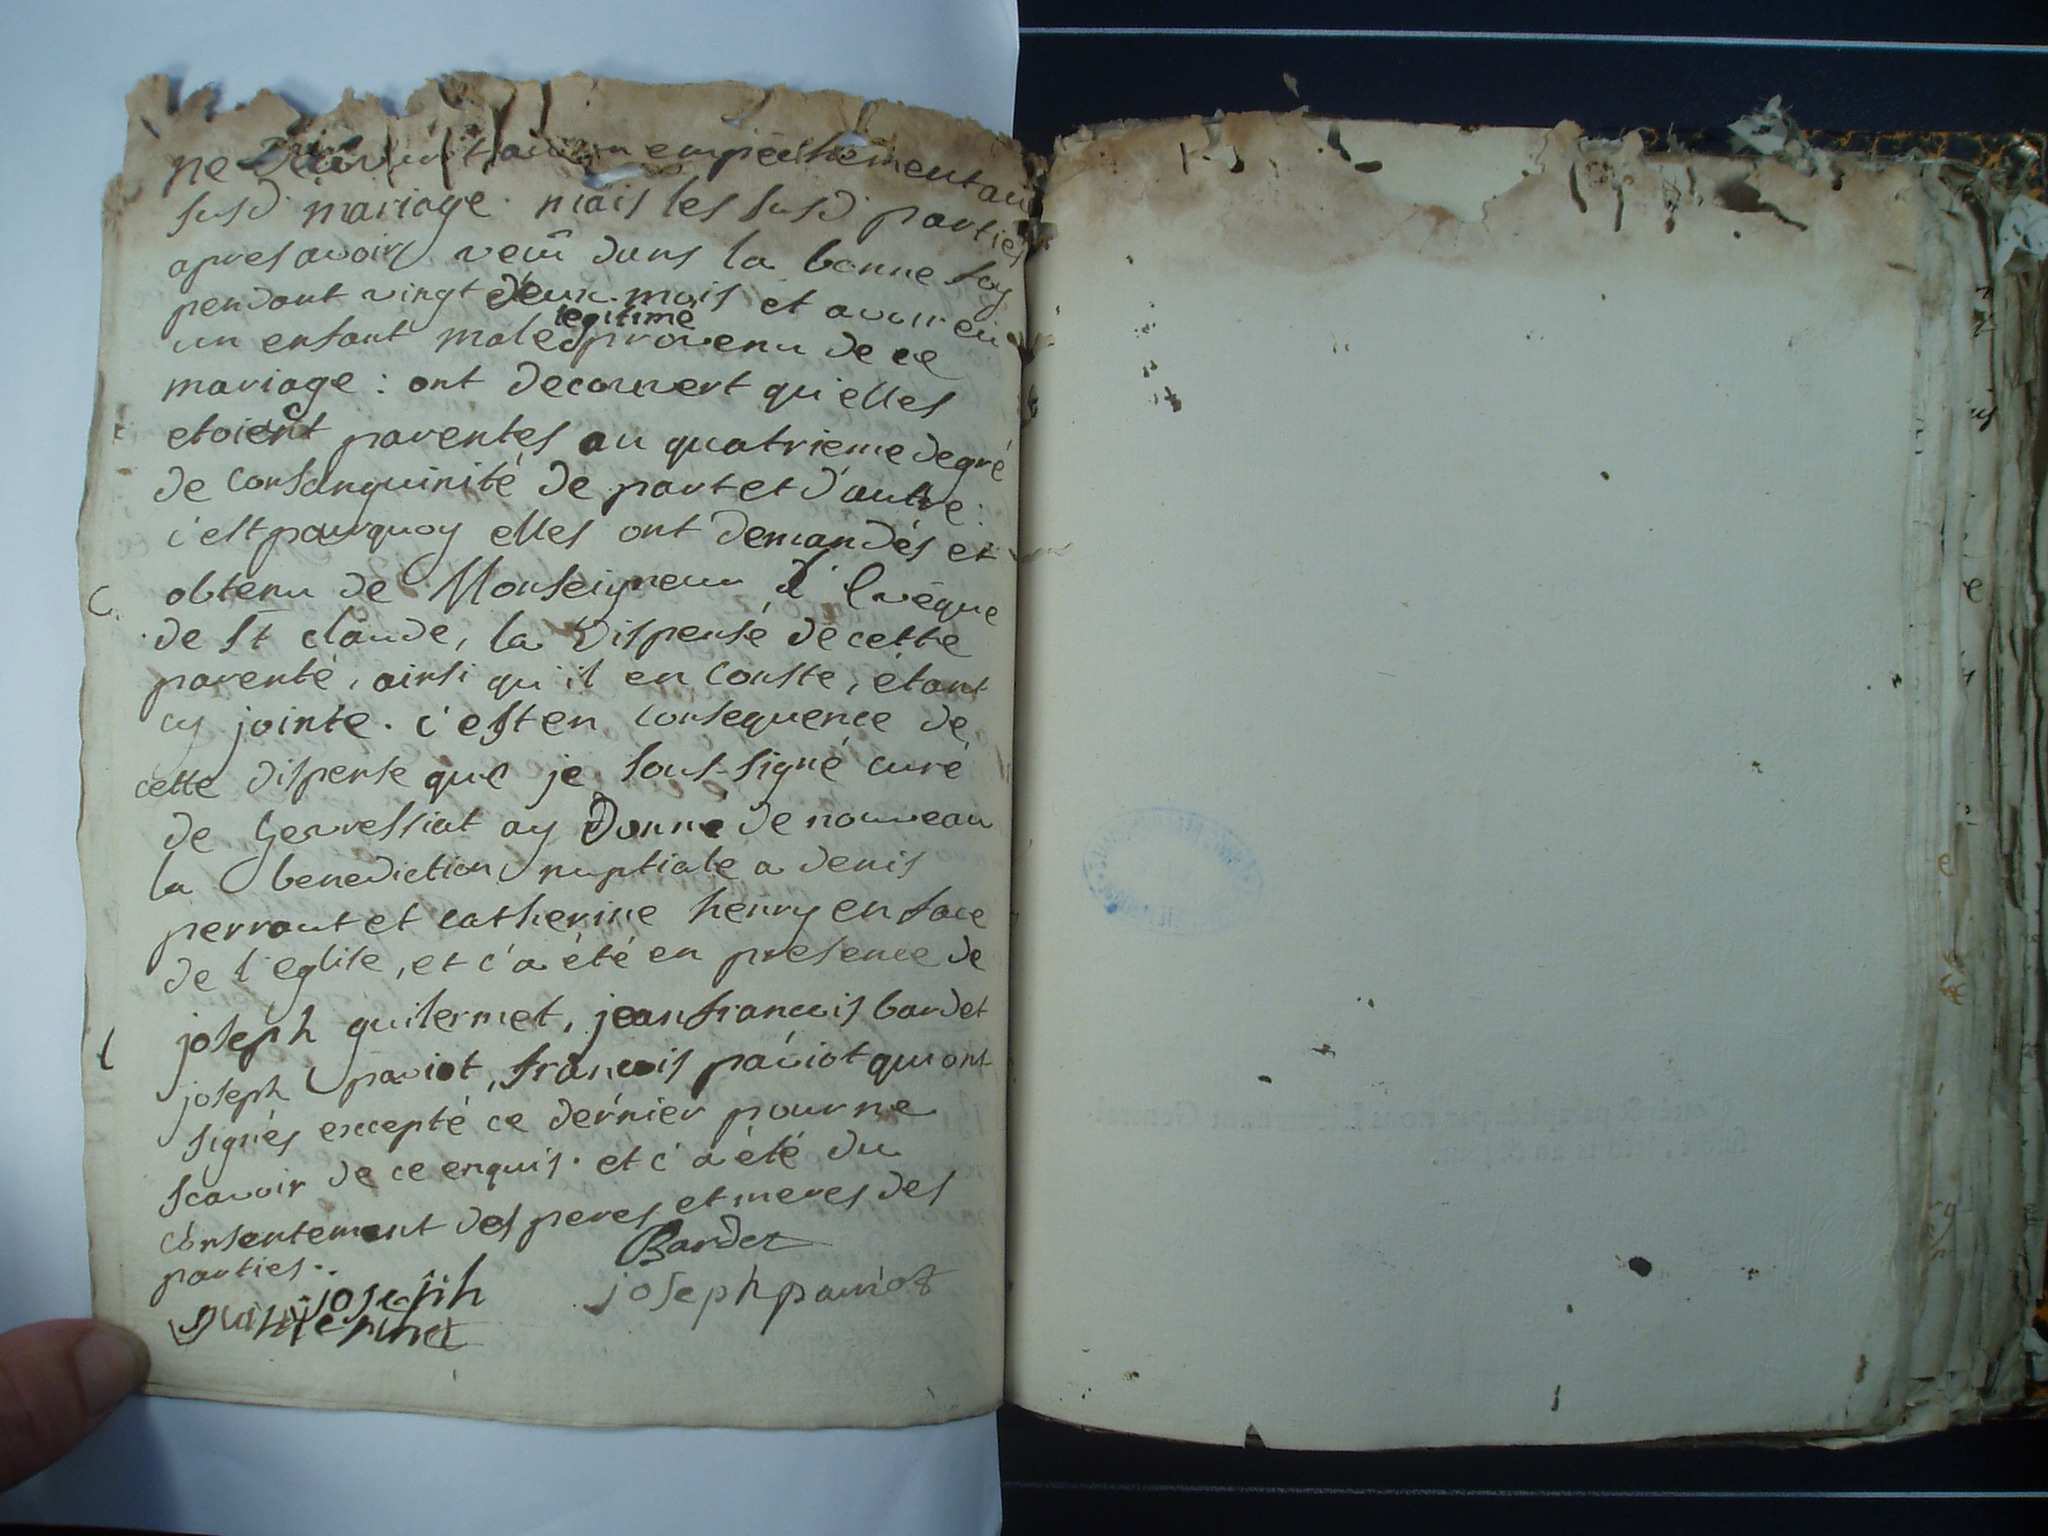 ne aucun empêchement au
susd mariage. mais les susd parties
apres avoir vecu dans la bonne foy
pendant vingt deux mois et avoir eu
un enfant male legitime provenu de ce
mariage : ont decouvert qu'elles
etoient parentes au quatrieme degré
de consanguinité de part et d'autre :
c'est pourquoy elles ont demandés et
obtenu de Monseigneur l'Evêque
de St claude, la dispense de cette
parenté, ainsi qu'il en conste, étant
cy jointe. c'est en consequence de
cette dispense que je sous-signé curé
de Germessiat ay Donné de nouveau
la benediction nuptiale a denis
perraut et catherine henry en face
de l'eglise, et c'a été en presence de
joseph guilermet, jean francois bardet
joseph paviot, francois paviot qui ont
signés excepté ce dernier pour ne
scavoir de ce enquis. et c'a été du
consentement des peres et meres des
parties..
Bardet
joseph
joseph paviot